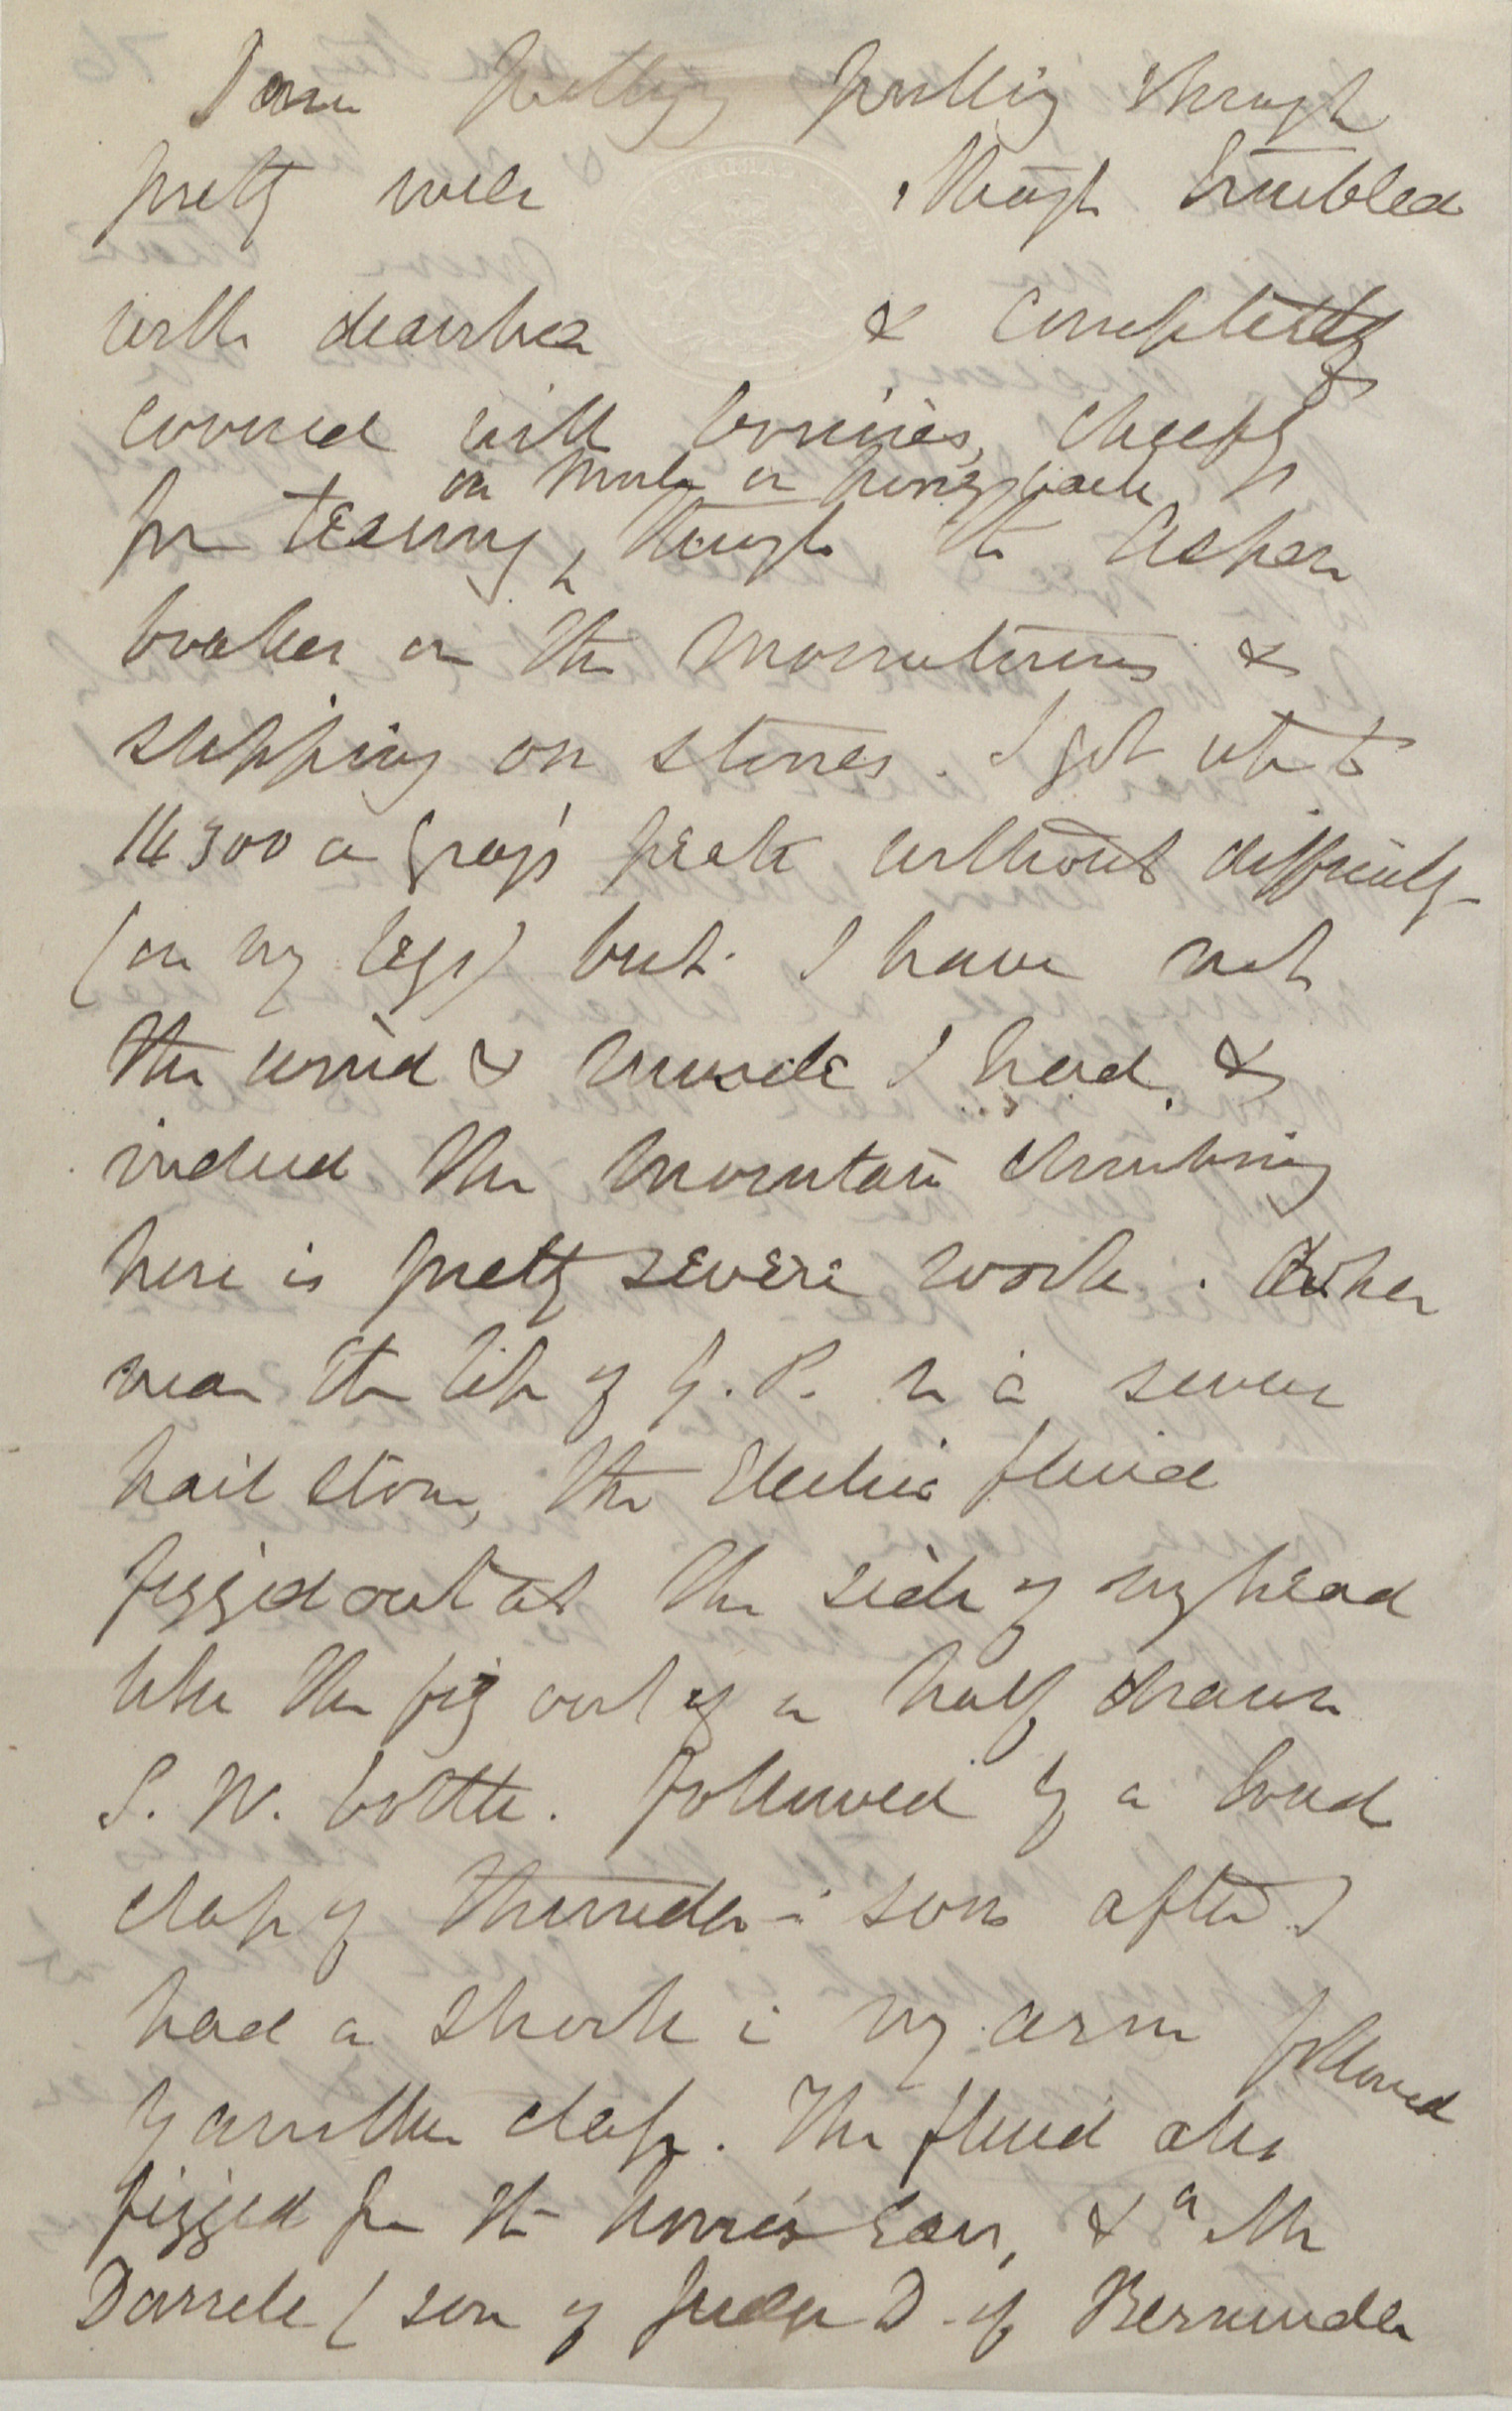 I am pulling through
pretty well though troubled
with diarrhea & completely
covered with bruises, chiefly
on mule or horseback
for tearing, through the Aspen
brakes on the mountains &
slipping on stones. I got up to
14300 on Gray's peak without difficulty
(on my legs) but I have not
the wind & muscle I had, &
indeed the mountain climbing
here is pretty severe work. When
near the top of G. P. in a severe
hail storm, the Electric fluid
fizzed out at the side of my head
like the fiz out of a half drawn
S. W. bottle. followed by a loud
clap of thunder - soon after I
had a shock i my arm followed
by another clap. The fluid also
fizzed fm the horse's Ears, & a Mr
Darrell (son of Judge D. of Bermuda